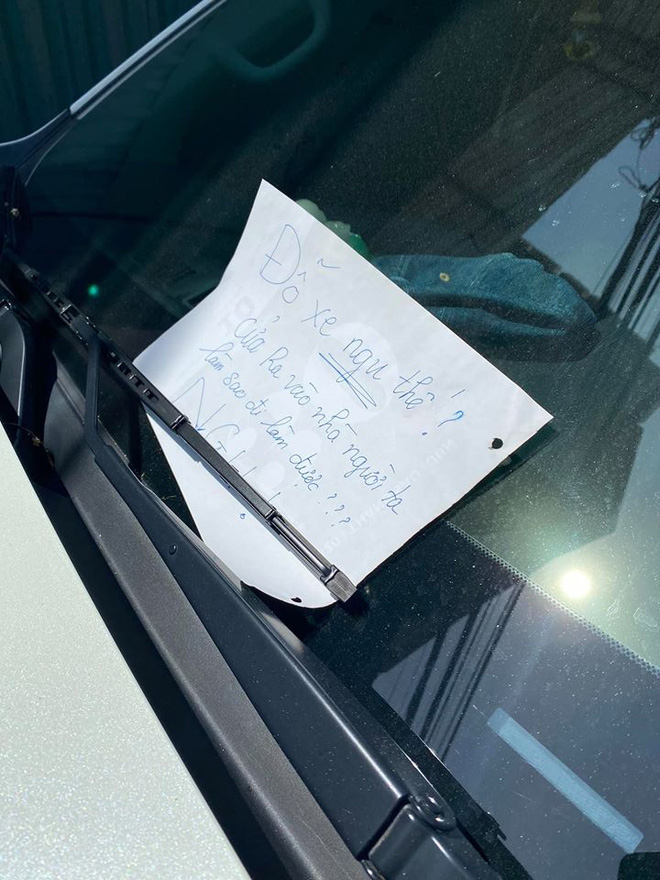 Đỗ xe ngu thế! ?
Cửa ra vào nhà người ta
làm sao đi làm được???